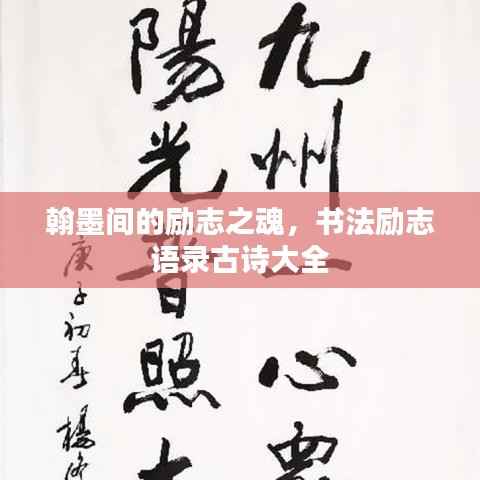 九州一心眾
陽光普照大
庚子初春 楊
翰墨间的励志之魂，书法励志
语录古诗大全